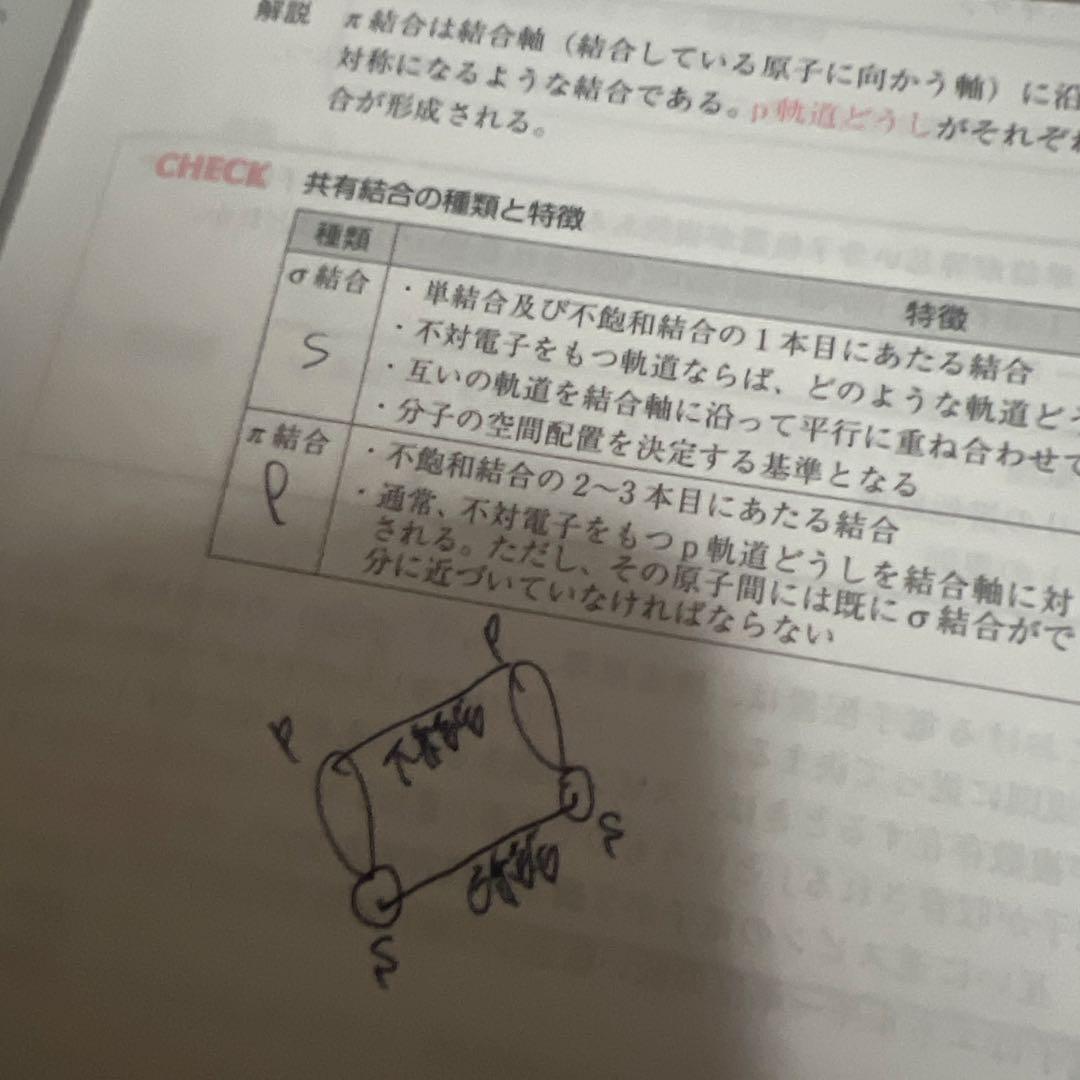 解説 π結合は結合軸（結合している原子に向かう軸）に沿
対称になるような結合である。p軌道どうしがそれぞれ
合が形成される。
CHECK 共有結合の種類と特徴
種類 特徴
σ結合
S
・単結合及び不飽和結合の1本目にあたる結合
・不対電子をもつ軌道ならば、どのような軌道どう
・互いの軌道を結合軸に沿って平行に重ね合わせて
・分子の空間配置を決定する基準となる
π結合
P
・不飽和結合の2〜3本目にあたる結合
・通常、不対電子をもつp軌道どうしを結合軸に対
される。ただし、その原子間には既にσ結合がで
分に近づいていなければならない
P
P
π結合
S
σ結合
S